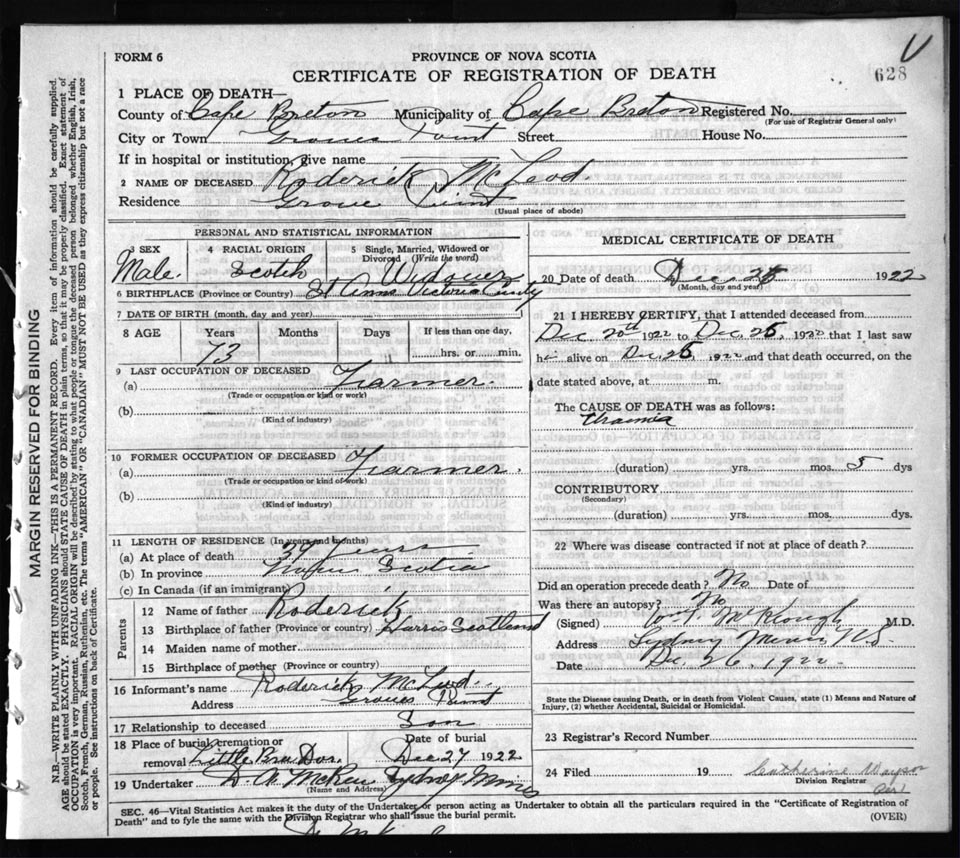 FORM 6
PROVINCE OF NOVA SCOTIA
CERTIFICATE OF REGISTRATION OF DEATH
628
1 PLACE OF DEATH—
County of Cape Breton Municipality of Cape Breton Registered No.
(For use of Registrar General only)
City or Town Groves Point Street House No.
If in hospital or institution, give name
2 NAME OF DECEASED Roderick McLeod
Residence Grove Point
(Usual place of abode)
PERSONAL AND STATISTICAL INFORMATION
3 SEX 4 RACIAL ORIGIN 5 Single, Married, Widowed or Divorced (Write the word)
Male. Scotch Widower
6 BIRTHPLACE (Province or Country) St Anns Victoria County
7 DATE OF BIRTH (month, day and year)
8 AGE Years Months Days If less than one day,
73 hrs. or min.
9 LAST OCCUPATION OF DECEASED
(a) Farmer.
(Trade or occupation or kind or work)
(b)
(Kind of industry)
10 FORMER OCCUPATION OF DECEASED
(a) Farmer.
(Trade or occupation or kind or work)
(b)
(Kind of industry)
11 LENGTH OF RESIDENCE (In years and months)
(a) At place of death years
(b) In province Scotia
(c) In Canada (if an immigrant)
Parents
12 Name of father Roderick
13 Birthplace of father (Province or country) Harris Scotland
14 Maiden name of mother
15 Birthplace of mother (Province or country)
16 Informant's name Roderick McLeod
Address Groves Point
17 Relationship to deceased Son
18 Place of burial, cremation or removal Little Bras Dor. Date of burial Dec 27 1922
19 Undertaker Sydney Mines
(Name and Address)
MEDICAL CERTIFICATE OF DEATH
20 Date of death Dec 1922
(Month, day and year)
21 I HEREBY CERTIFY, that I attended deceased from
Dec 20th 1922 to Dec, 26, 1922 that I last saw
him alive on Dec 26 1922 and that death occurred, on the
date stated above, at m.
The CAUSE OF DEATH was as follows:
Uraemia
(duration) yrs. mos. 5 dys
CONTRIBUTORY
(Secondary)
(duration) yrs. mos. dys
22 Where was disease contracted if not at place of death?
Did an operation precede death? No Date of
Was there an autopsy? No
(Signed) M.D.
Address Sydney Mines, N.S.
Date Dec. 26, 1922
State the Disease causing Death, or in death from Violent Causes, state (1) Means and Nature of
Injury, (2) whether Accidental, Suicidal or Homicidal.
23 Registrar's Record Number
24 Filed 19 Catherine
Division Registrar
SEC. 46—Vital Statistics Act makes it the duty of the Undertaker or person acting as Undertaker to obtain all the particulars required in the "Certificate of Registration of
Death" and to fyle the same with the Division Registrar who shall issue the burial permit.
(OVER)
MARGIN RESERVED FOR BINDING
N.B.—WRITE PLAINLY WITH UNFADING INK—THIS IS A PERMANENT RECORD. Every item of information should be carefully supplied.
AGE should be stated EXACTLY. PHYSICIANS should STATE CAUSE OF DEATH in plain terms, so that it may be properly classified. Exact statement of
OCCUPATION is very important. RACIAL ORIGIN will be described by stating to what people or tongue the deceased person belonged, whether English, Irish,
Scotch, French, German, Russian, Ruthenian, etc. The terms "AMERICAN" OR "CANADIAN" MUST NOT BE USED as they express citizenship but not a race
or people. See instructions on back of Certificate.